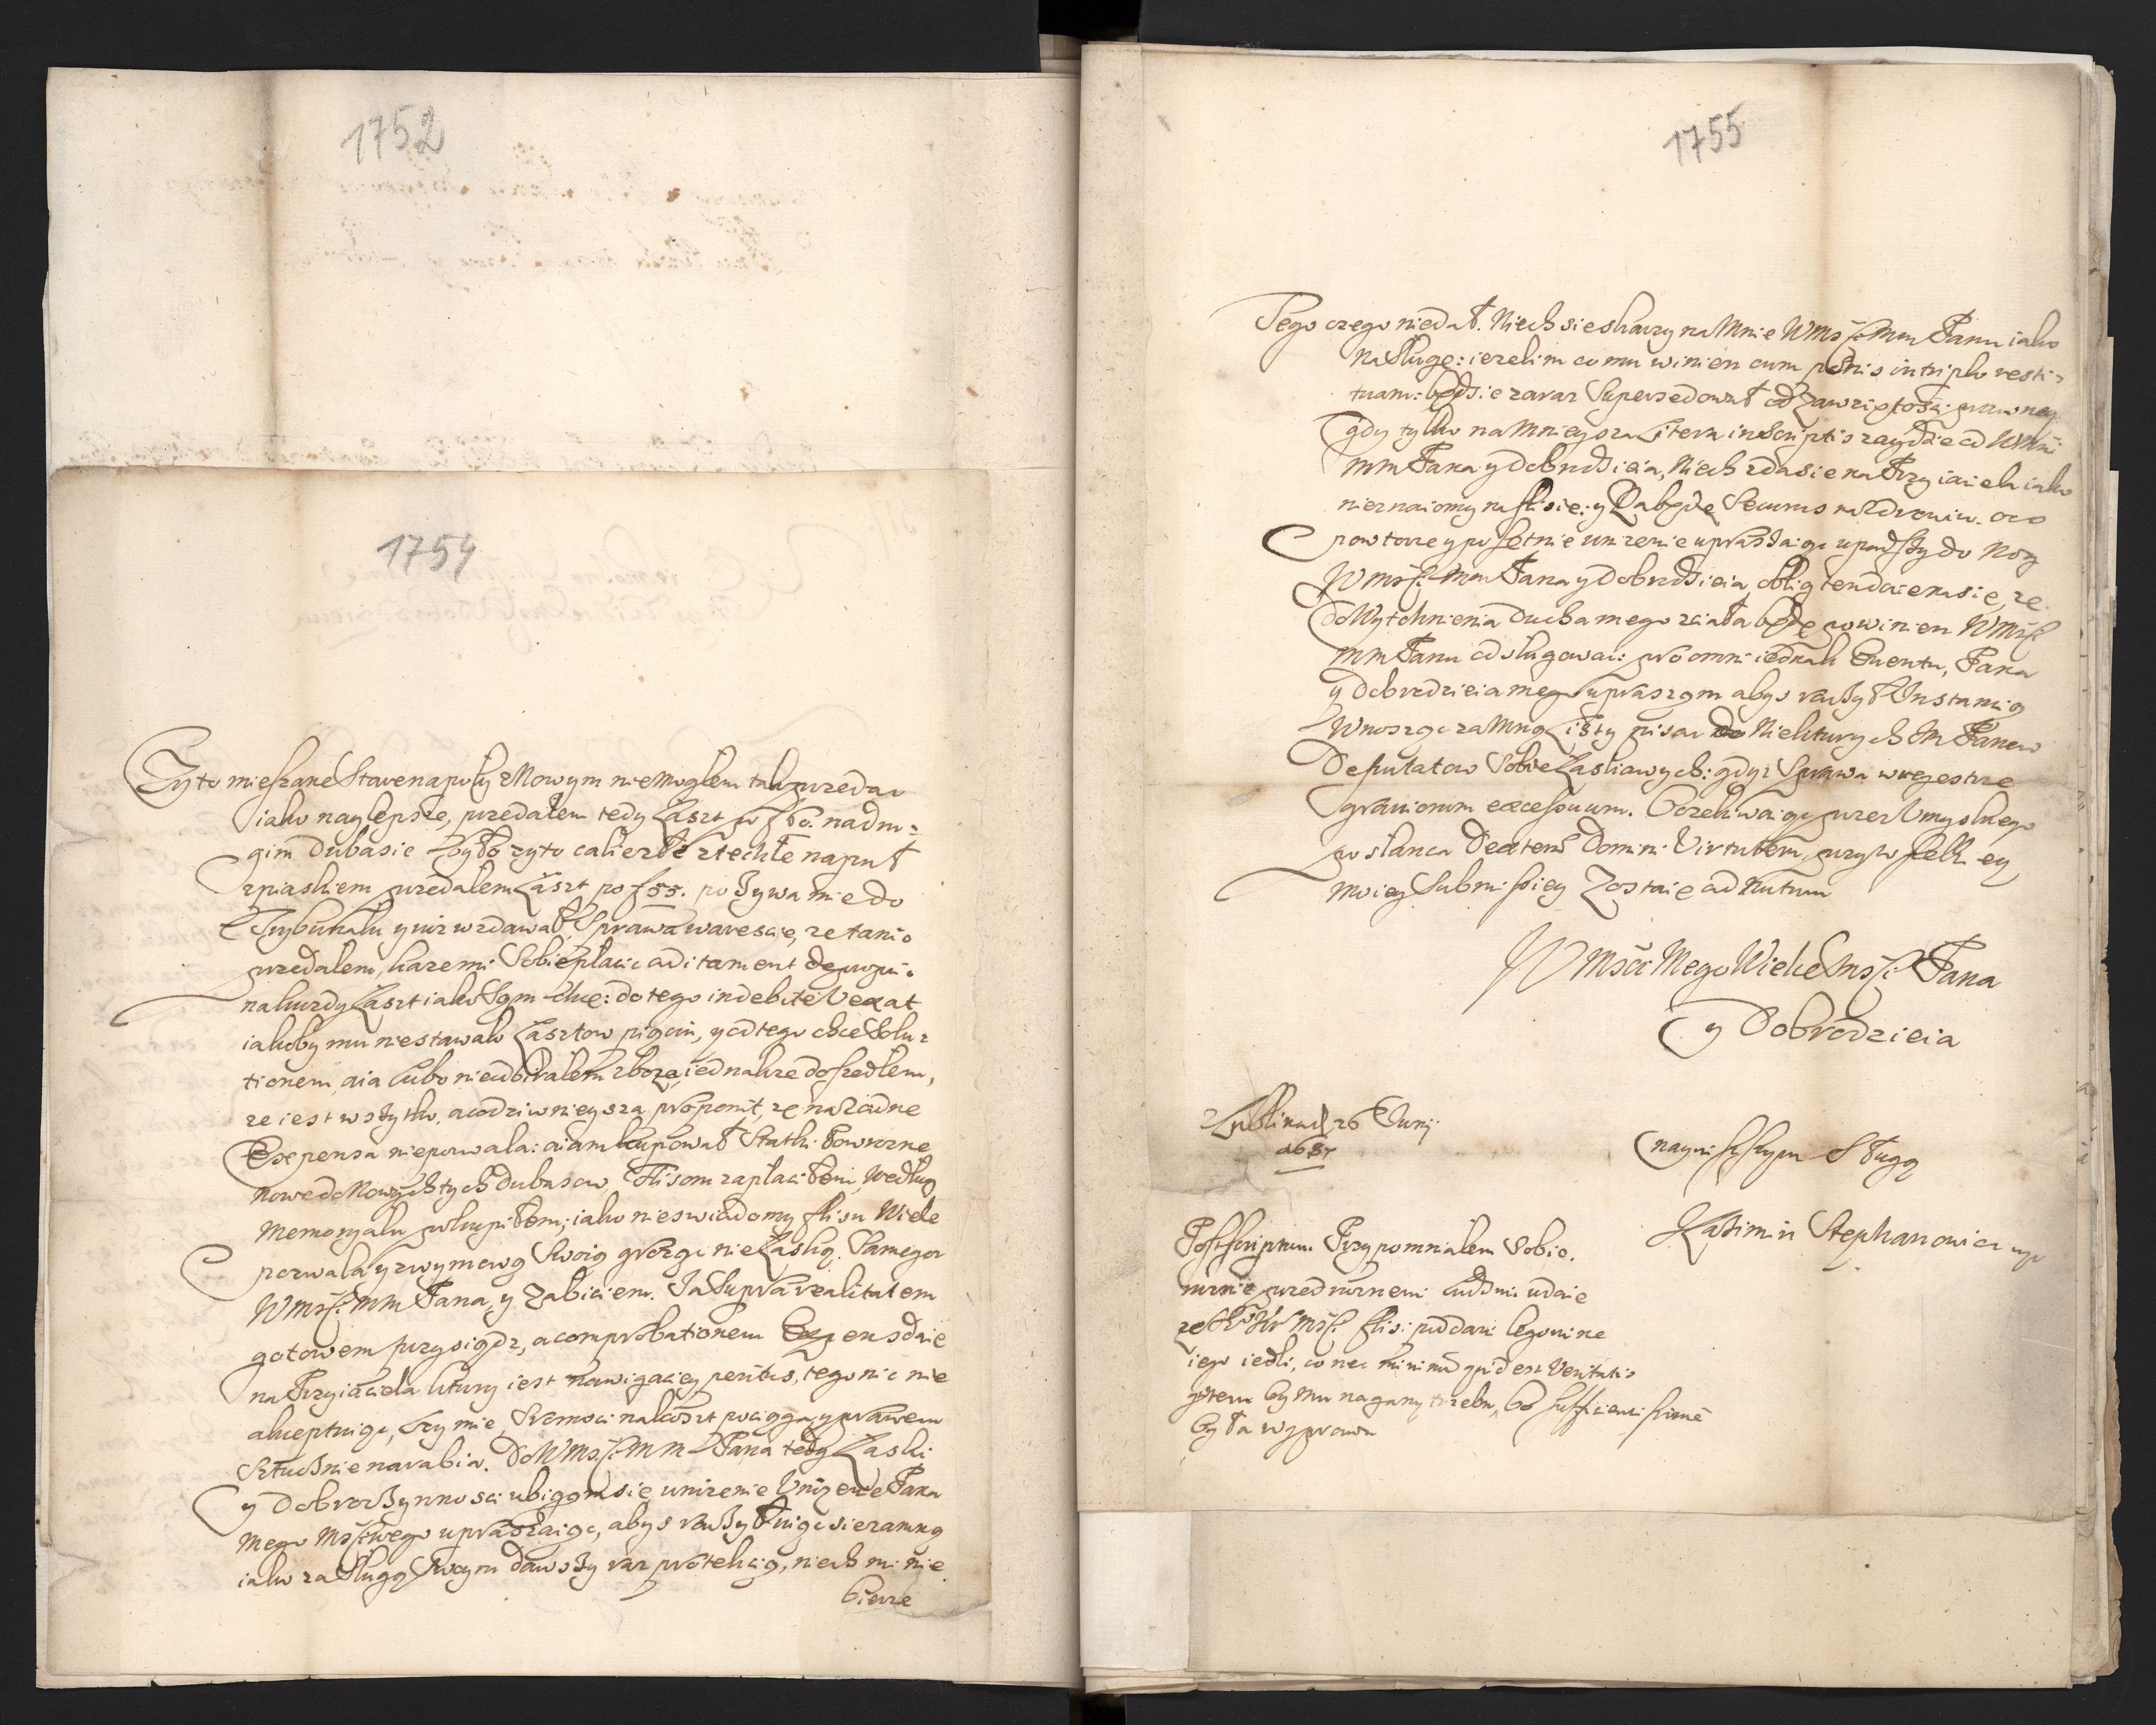 1752
1754
Zyto mieszane Stare na poły z Nowym nie moglem tak przedac
iako naylepsze, przedałem tedy Łaszt po f 60. na dru=
gim Dubasie było zyto całie złe ztechłe na puł
z piaskiem przedałem Łaszt po f 55. pozywa mie do
Trybunału y iuz wzdawał Sprawa w arescie, ze tanio
przedałem, kaze mi Sobie płacic aditament
na kazdy Łaszt iako Sąm chce: do tego indebite Vexat
iakoby mu niestawało Łasztow pięciu, y od tego chce Solu=
tionem, a ia lubo nieodbirałem zboza, iednakze doszedłem,
ze iest wszytko, a co dziwnieysza proponit, ze na zadne
Expensa niepozwala: a iam kupował Statki Powrozne
nowe do Nowych tych dubasow, Flisom zapłaciłem, według
Memoryału pokupiłem; iako nieswiadomy flisu Wiele
pozwala y z wymową Swoią grozge nie Łaską Samego
WMsci: MM Pana, y Zabiciem. Ia Supra realitatem
gotowem przysiądz, a comprobationem Expens daie
na Przyiaciela ktury iest nawigaciey peritus, tego nic nie
akceptuige, Lecz mie Przemoca na koszt pociąga, y prawem
Sztucznie narabia. Do WMsci: MM Pana tedy Łaski
y Dobroczynnosci ubiegam sie unizenie Unizenie Pana
Mego Msciwego upraszaige, abys raczył uiąc sie za mną
iako za Sługą Swoym dawszy raz protekcią, niech mi nie
bierze
1755
Tego czego niedał. Niech sie skarzy na Mnie WMsci: Mm Panu iako
na Sługę: iezelim co mu winien cum pœnis in triplo resti=
tuam: będzie zaraz Supersedował od Zawziętosci prawney
gdy tylko na Mnieysza Litera in Scriptis zaydzie od WMsci
MM Pana y Dobrodzieia, Niech zda sie na Przyiaciela iako
nieznaiomy na flisie: y Ia będe Securus na Zdrowiu. oco
powtore y po setnie unizenie upraszaige upadszy do Nog
WMsci: Mm Pana y Dobrodzieia, oblig ten daie na sie, ze
do Wytchnienia Ducha mego z ciała będe powinien WMsci
MM Panu odsługowac: pro omni iednak Euentu, Pana
y Dobrodzieia mego upraszam abys raczył Instancią
Wnoszge za Mną Listy pisac do Niekturych Im Panow
Deputatow Sobie Łaskawych: gdyz Sprawa w regestrze
grauiorum excessuum. Oczekiwaige przez Umyslnego
posłanca Dexteræ Domini Virtutem, przy wszelkiey
moiey Submissiey Zostaię ad Nutum
WMsci Mego Wielce Msci: Pana
y Dobrodzieia
z Lublina d. 26 Iunij
1687
naynisszym Sługą
Kazimirz Stephanowicz mp
Postscriptum. Przypomniałem Sobie.
mnie przed roznemi Ludzmi udaie
ze WMsci: flisi poddani
iego iedli, co nec minimu quid est Veritatis
potem by mu nagany trzeba, bo sufficientissime
była wyprawa